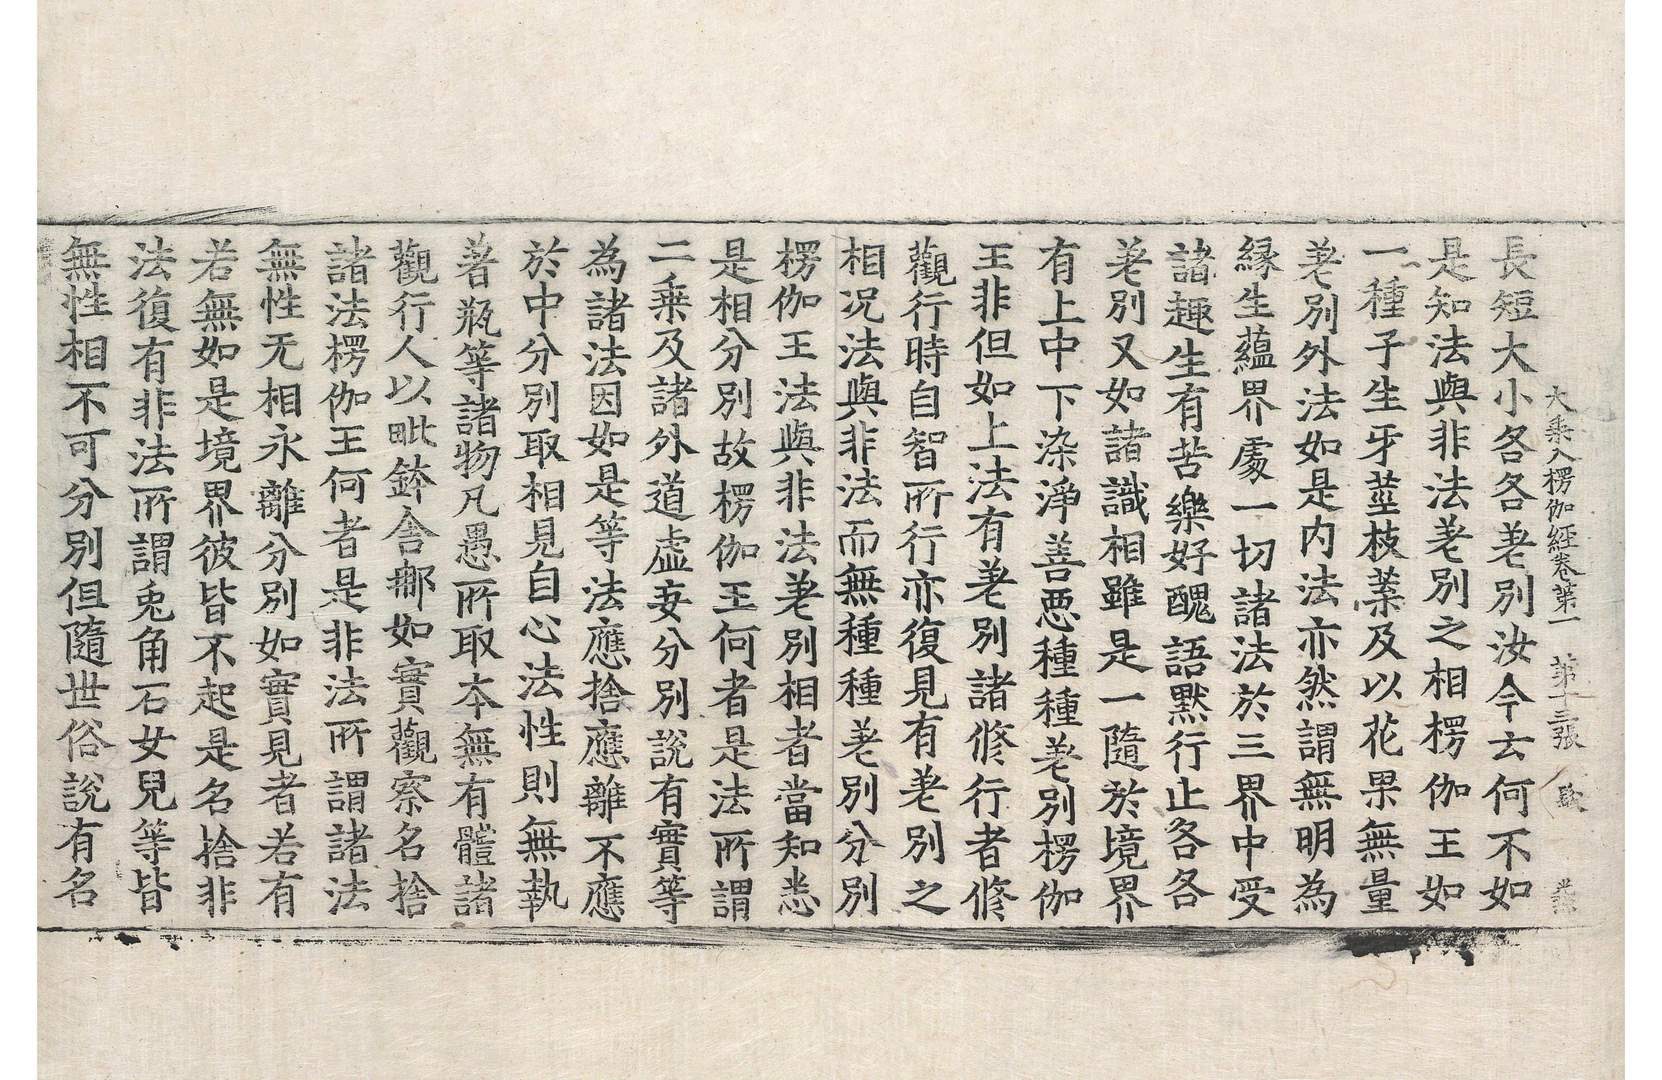 大乘入楞伽經卷第一 第十三張
長短大小各各差別汝今云何不如
是知法與非法差別之相楞伽王如
一種子生牙莖枝葉及以花果無量
差別外法如是内法亦然謂無明為
緣生蘊界處一切諸法於三界中受
諸趣生有苦樂好醜語默行止各各
差別又如諸識相雖是一隨於境界
有上中下染淨善惡種種差別楞伽
王非但如上法有差別諸修行者修
觀行時自智所行亦復見有差別之
相况法與非法而無種種差別分別
楞伽王法與非法差別相者當知悉
是相分別故楞伽王何者是法所謂
二乘及諸外道虛妄分別說有實等
為諸法因如是等法應捨應離不應
於中分別取相見自心法性則無執
著瓶等諸物凡愚所取本無有體諸
觀行人以毗鉢舍那如實觀察名捨
諸法楞伽王何者是非法所謂諸法
無性无相永離分別如實見者若有
若無如是境界彼皆不起是名捨非
法復有非法所謂兎角石女兒等皆
無性相不可分別但隨世俗說有名